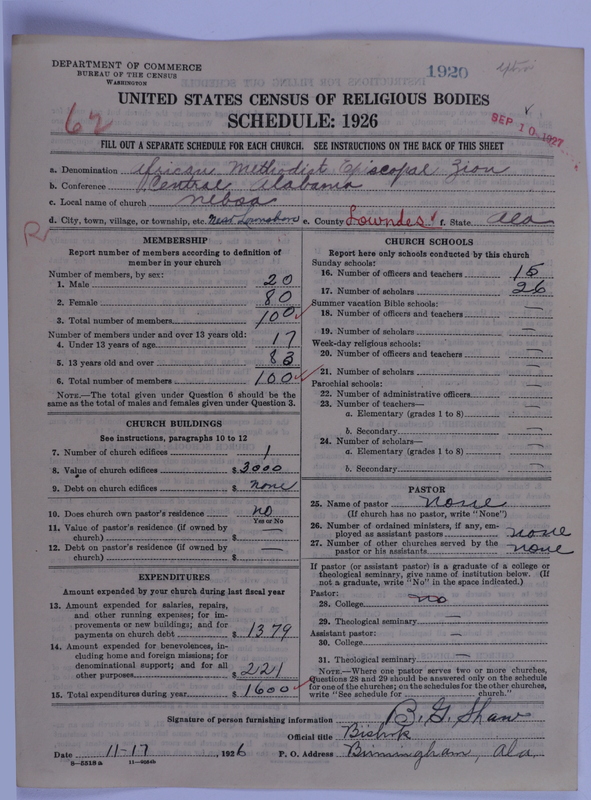 DEPARTMENT OF COMMERCE
BUREAU OF THE CENSUS
WASHINGTON
1920
UNITED STATES CENSUS OF RELIGIOUS BODIES
SCHEDULE: 1926
62
SEP 10 1927
FILL OUT A SEPARATE SCHEDULE FOR EACH CHURCH. SEE INSTRUCTIONS ON THE BACK OF THIS SHEET
a. Denomination African Methodist Episcopal Zion
b. Conference Central Alabama
c. Local name of church
d. City, town, village, or township, etc. Near e. County Lowndes f. State Ala
R
MEMBERSHIP
Report number of members according to definition of
member in your church
Number of members, by sex:
1. Male 20
2. Female 80
3. Total number of members 100
Number of members under and over 13 years old:
4. Under 13 years of age 17
5. 13 years old and over 83
6. Total number of members 100
NOTE.—The total given under Question 6 should be the
same as the total of males and females given under Question 3.
CHURCH BUILDINGS
See instructions, paragraphs 10 to 12
7. Number of church edifices 1
8. Value of church edifices $ 3000
9. Debt on church edifices $ none
10. Does church own pastor's residence? no
Yes or No
11. Value of pastor's residence (if owned by
church) $ —
12. Debt on pastor's residence (if owned by
church) $ —
EXPENDITURES
Amount expended by your church during last fiscal year
13. Amount expended for salaries, repairs,
and other running expenses; for im-
provements or new buildings; and for
payments on church debt $ 1379
14. Amount expended for benevolences, in-
cluding home and foreign missions; for
denominational support; and for all
other purposes $ 221
15. Total expenditures during year $ 1600
CHURCH SCHOOLS
Report here only schools conducted by this church
Sunday schools:
16. Number of officers and teachers 15
17. Number of scholars 26
Summer vacation Bible schools:
18. Number of officers and teachers —
19. Number of scholars —
Week-day religious schools:
20. Number of officers and teachers —
21. Number of scholars —
Parochial schools:
22. Number of administrative officers —
23. Number of teachers—
a. Elementary (grades 1 to 8) —
b. Secondary —
24. Number of scholars—
a. Elementary (grades 1 to 8) —
b. Secondary —
PASTOR
25. Name of pastor None
(If church has no pastor, write "None")
26. Number of ordained ministers, if any, em-
ployed as assistant pastors none
27. Number of other churches served by the
pastor or his assistants none
If pastor (or assistant pastor) is a graduate of a college or
theological seminary, give name of institution below. (If
not a graduate, write "No" in the space indicated.)
Pastor:
28. College no
29. Theological seminary —
Assistant pastor:
30. College —
31. Theological seminary —
NOTE.—Where one pastor serves two or more churches,
Questions 28 and 29 should be answered only on the schedule
for one of the churches; on the schedules for the other churches,
write "See schedule for church."
Signature of person furnishing information B. G. Shaw
Official title Bishop
Date 11-17, 1926 P. O. Address Birmingham, Ala.
8—5518 a 11—9034b